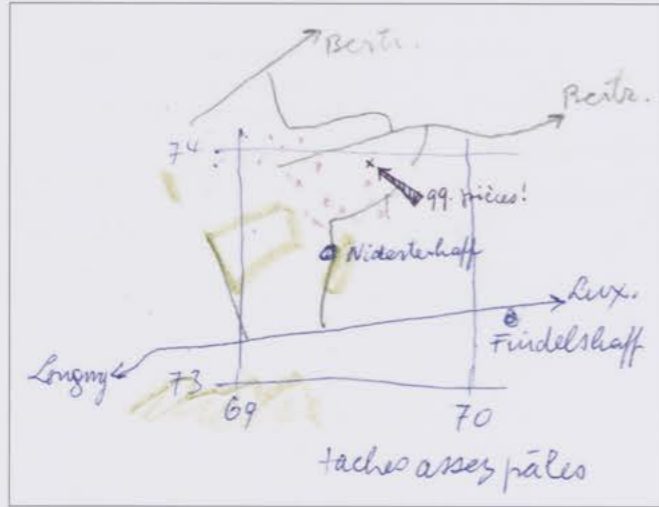 Bertr.
Bertr.
74
99 pièces!
Nidesterhaff
Lux.
Findelshaff
Longwy
73
69
70
taches assez pâles